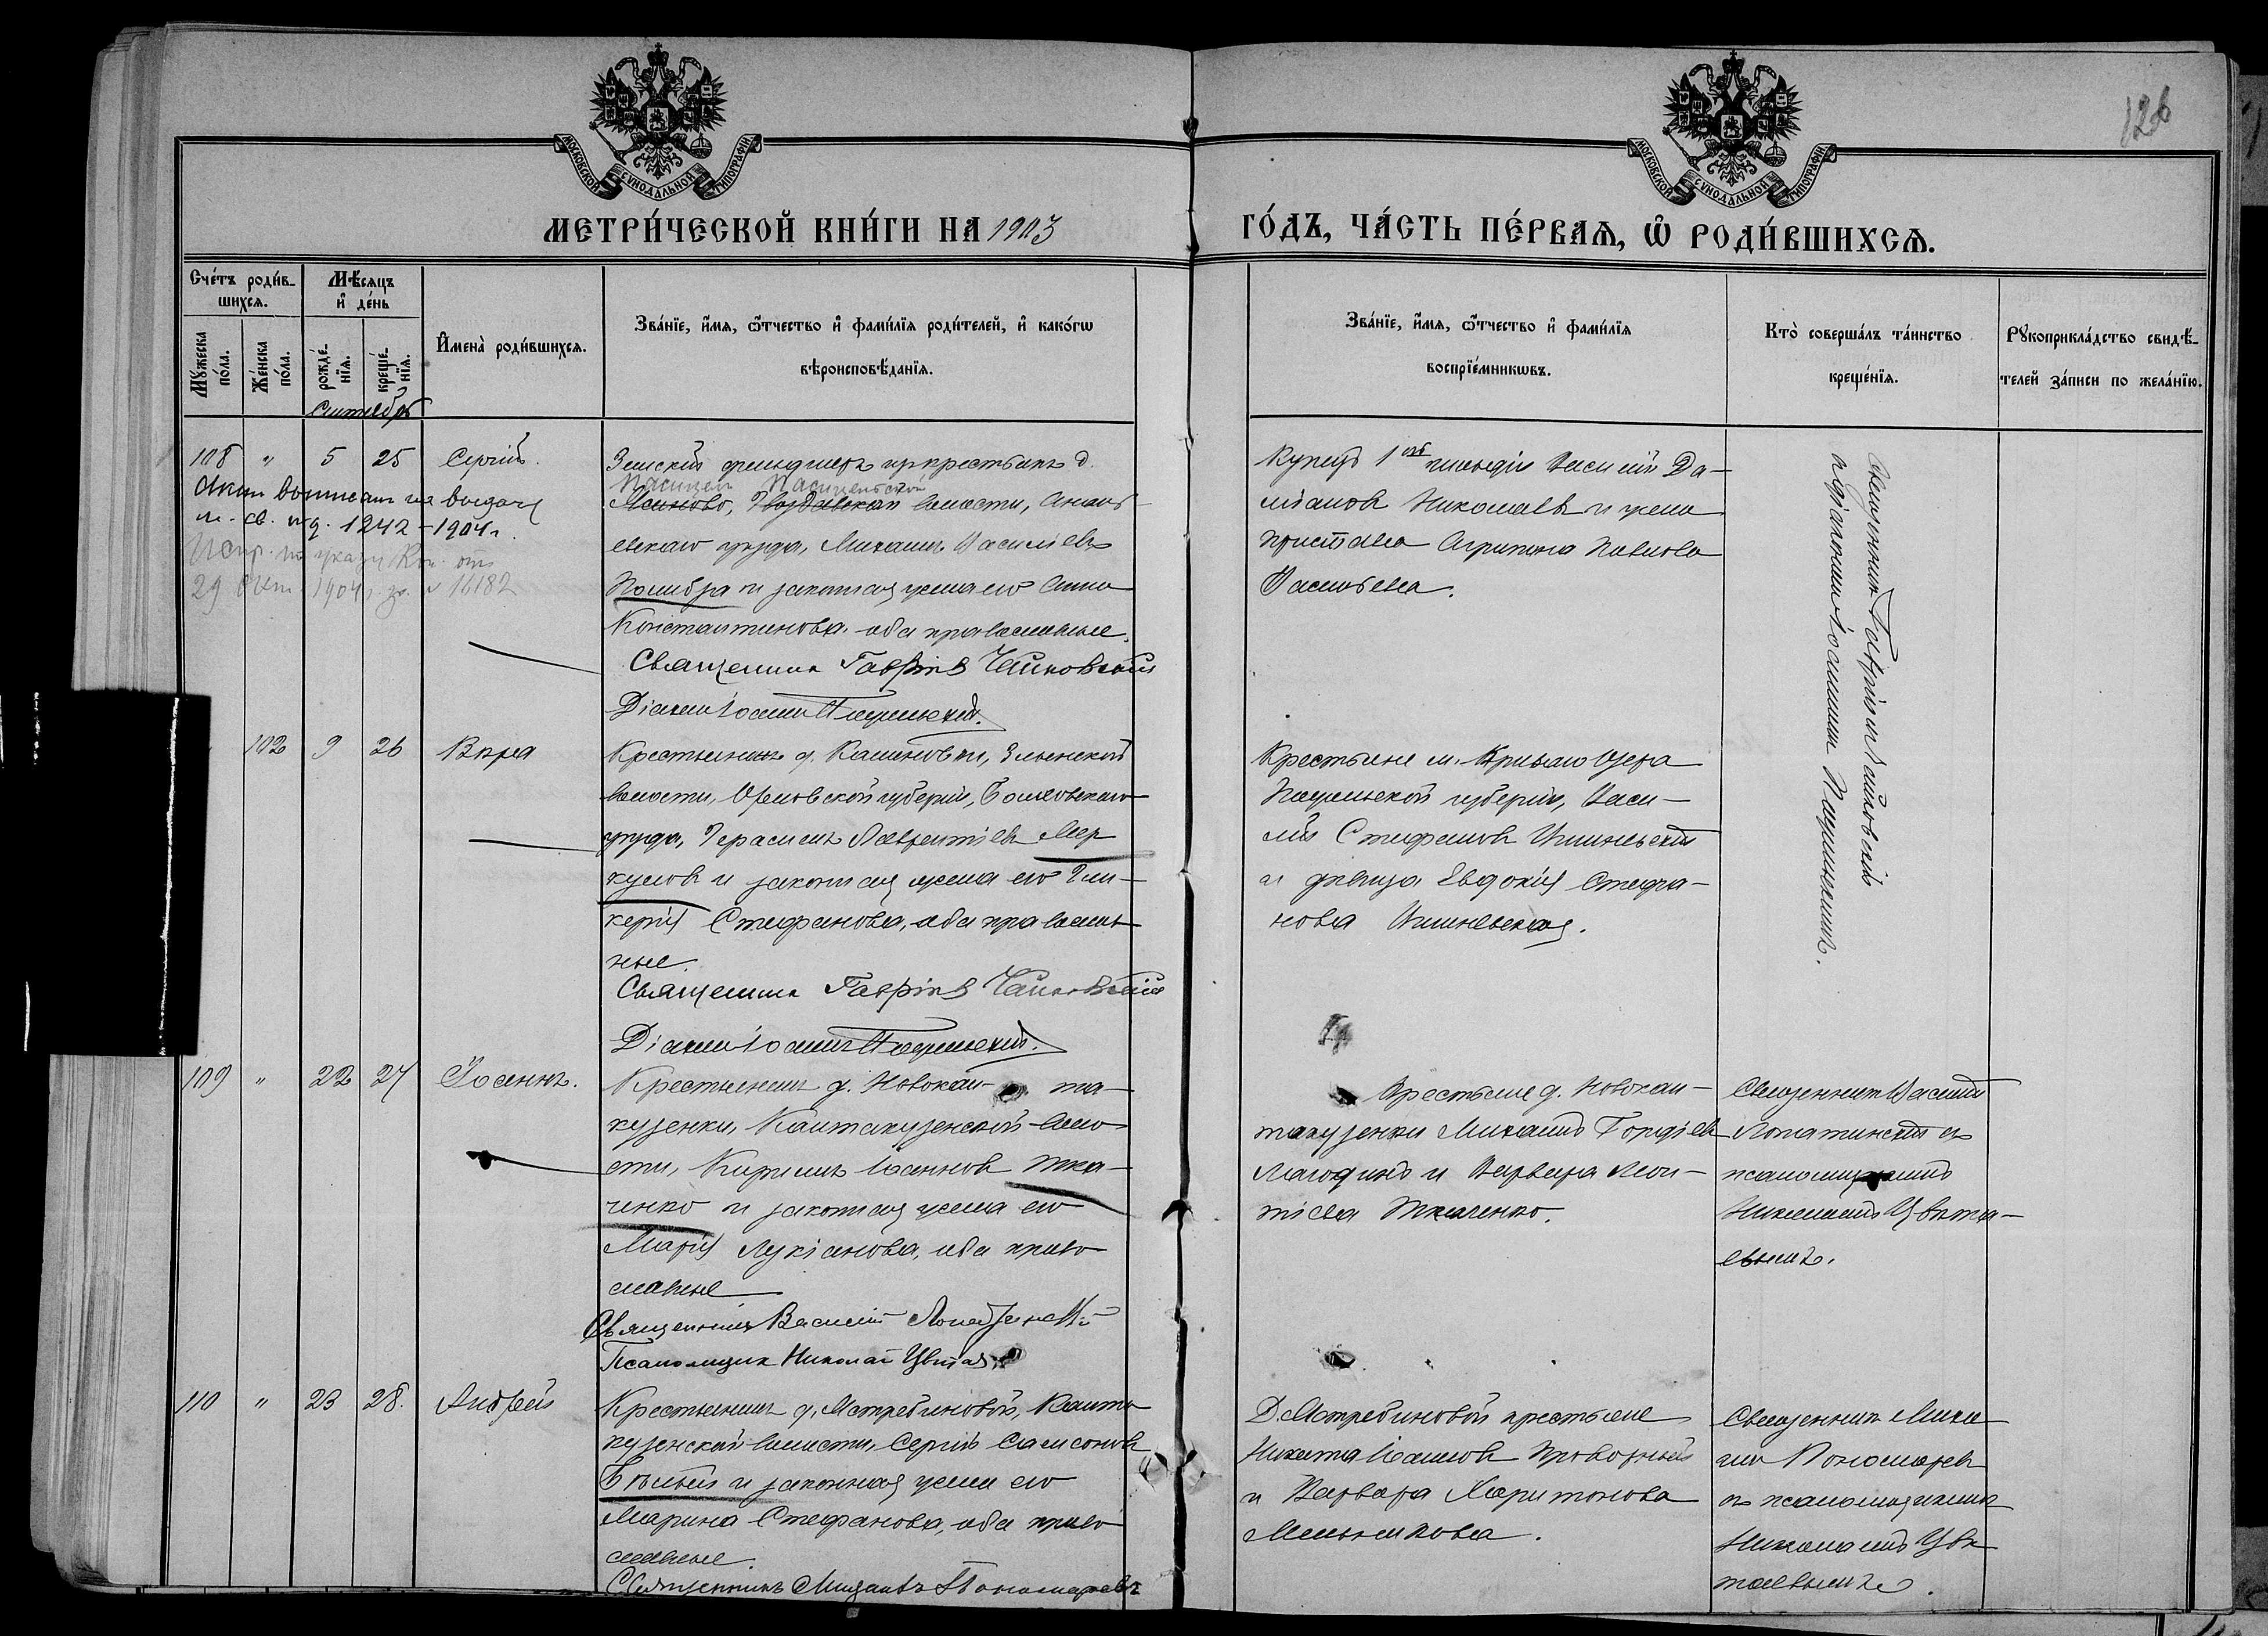 126
МОСКОВСКОЙ СѴНОДАЛЬНОЙ ТИПОГРАФІИ
МОСКОВСКОЙ СѴНОДАЛЬНОЙ ТИПОГРАФІИ
МЕТРИ́ЧЕСКОЙ КНИ́ГИ НА 1903
ГО́ДЪ, ЧА́СТЬ ПЕ́РВАѦ, Ѽ РОДИ́ВШИХСѦ.
Сче́тъ роди́в-
шихсѧ.
Мꙋжеска по́ла.
Же́нска по́ла.
Мѣ́сяцъ
и҆ де́нь
рожде́-
нїѧ.
креще́-
нїѧ.
И҆мена̀ роди́вшихсѧ.
Зва́нїе, и҆́мѧ, ѻ҆́тчество и҆ фами́лїѧ роди́телей, и҆ како́гѡ
вѣроисповѣ́данїѧ.
Зва́нїе, и҆́мѧ, ѻ҆́тчество и҆ фами́лїѧ
воспрїе́мникѡвъ.
Кто̀ соверша́лъ та́инство
креще́нїѧ.
Рꙋкоприкла́дство свидѣ́-
телей за́писи по жела́нїю.
Сентябрь
108 " 5 25 Сергій.
Земскій фельдшеръ крестьянъ д.
Пасицелы Пасицельской
Ясиново, Гвоздавской волости, Анань-
евскаго уѣзда, Михаилъ Васильевъ
и законная жена его Анна
Константинова, оба православные.
Священникъ Гавріилъ Чайковскій
Діаконъ Іоаннъ
Актъ выписанъ на выдачу
м. св. 1242 - 1904 г.
Испр. по указу Кон. отъ
29 Окт. 1904 г. за № 16182
Купецъ 1ой гильдіи Василій Да-
міановъ Николаевъ и жена
пристава Агрипина Павлова
Васильева.
Священникъ Гавріилъ Чайковскій
съ діакономъ Іоанномъ
102 9 26 Вѣра
Крестьянинъ д. Калиновки,
волости, Орловской губерніи, Болховскаго
уѣзда, Герасимъ Лаврентіевъ Мер-
куловъ и законная жена его Гли-
керія Стефанова, оба православ-
ные.
Священникъ Гавріилъ Чайковскій
Діаконъ Іоаннъ
Крестьяне м. Криваго Озера
Подольской губерніи, Васи-
лій Стефановъ
и дѣвица Евдокія Стефа-
нова
109 " 22 27 Іоаннъ.
Крестьянинъ д. Новокан- та-
кузенки, Кантакузенской воло-
сти, Кириллъ Іоанновъ Тка-
ченко и законная жена его
Марія Лукіанова, оба право-
славные
Священникъ Василій Лопатинскій
Псаломщикъ Николай Цвѣтаевъ
Крестьяне д. Новокан-
такузенки Михаилъ Гордіевъ
и Варвара Леон-
тіева Ткаченко.
Священникъ Василій
Лопатинскій съ
псаломщикомъ
Николаемъ Цвѣта-
евымъ.
110 " 23 28. Андрей
Крестьянинъ д. Ястребиновой, Канта-
кузенской волости, Сергій Самсоновъ
и законная жена его
Марина Стефанова, оба право-
славные.
Священникъ Михаилъ Пономаревъ
Д. Ястребиновой крестьяне
Никита Іоанновъ Проворный
и Варвара Харитонова
Мельникова.
Священникъ Миха-
илъ Пономаревъ
съ псаломщикомъ
Николаемъ Цвѣ-
таевымъ.